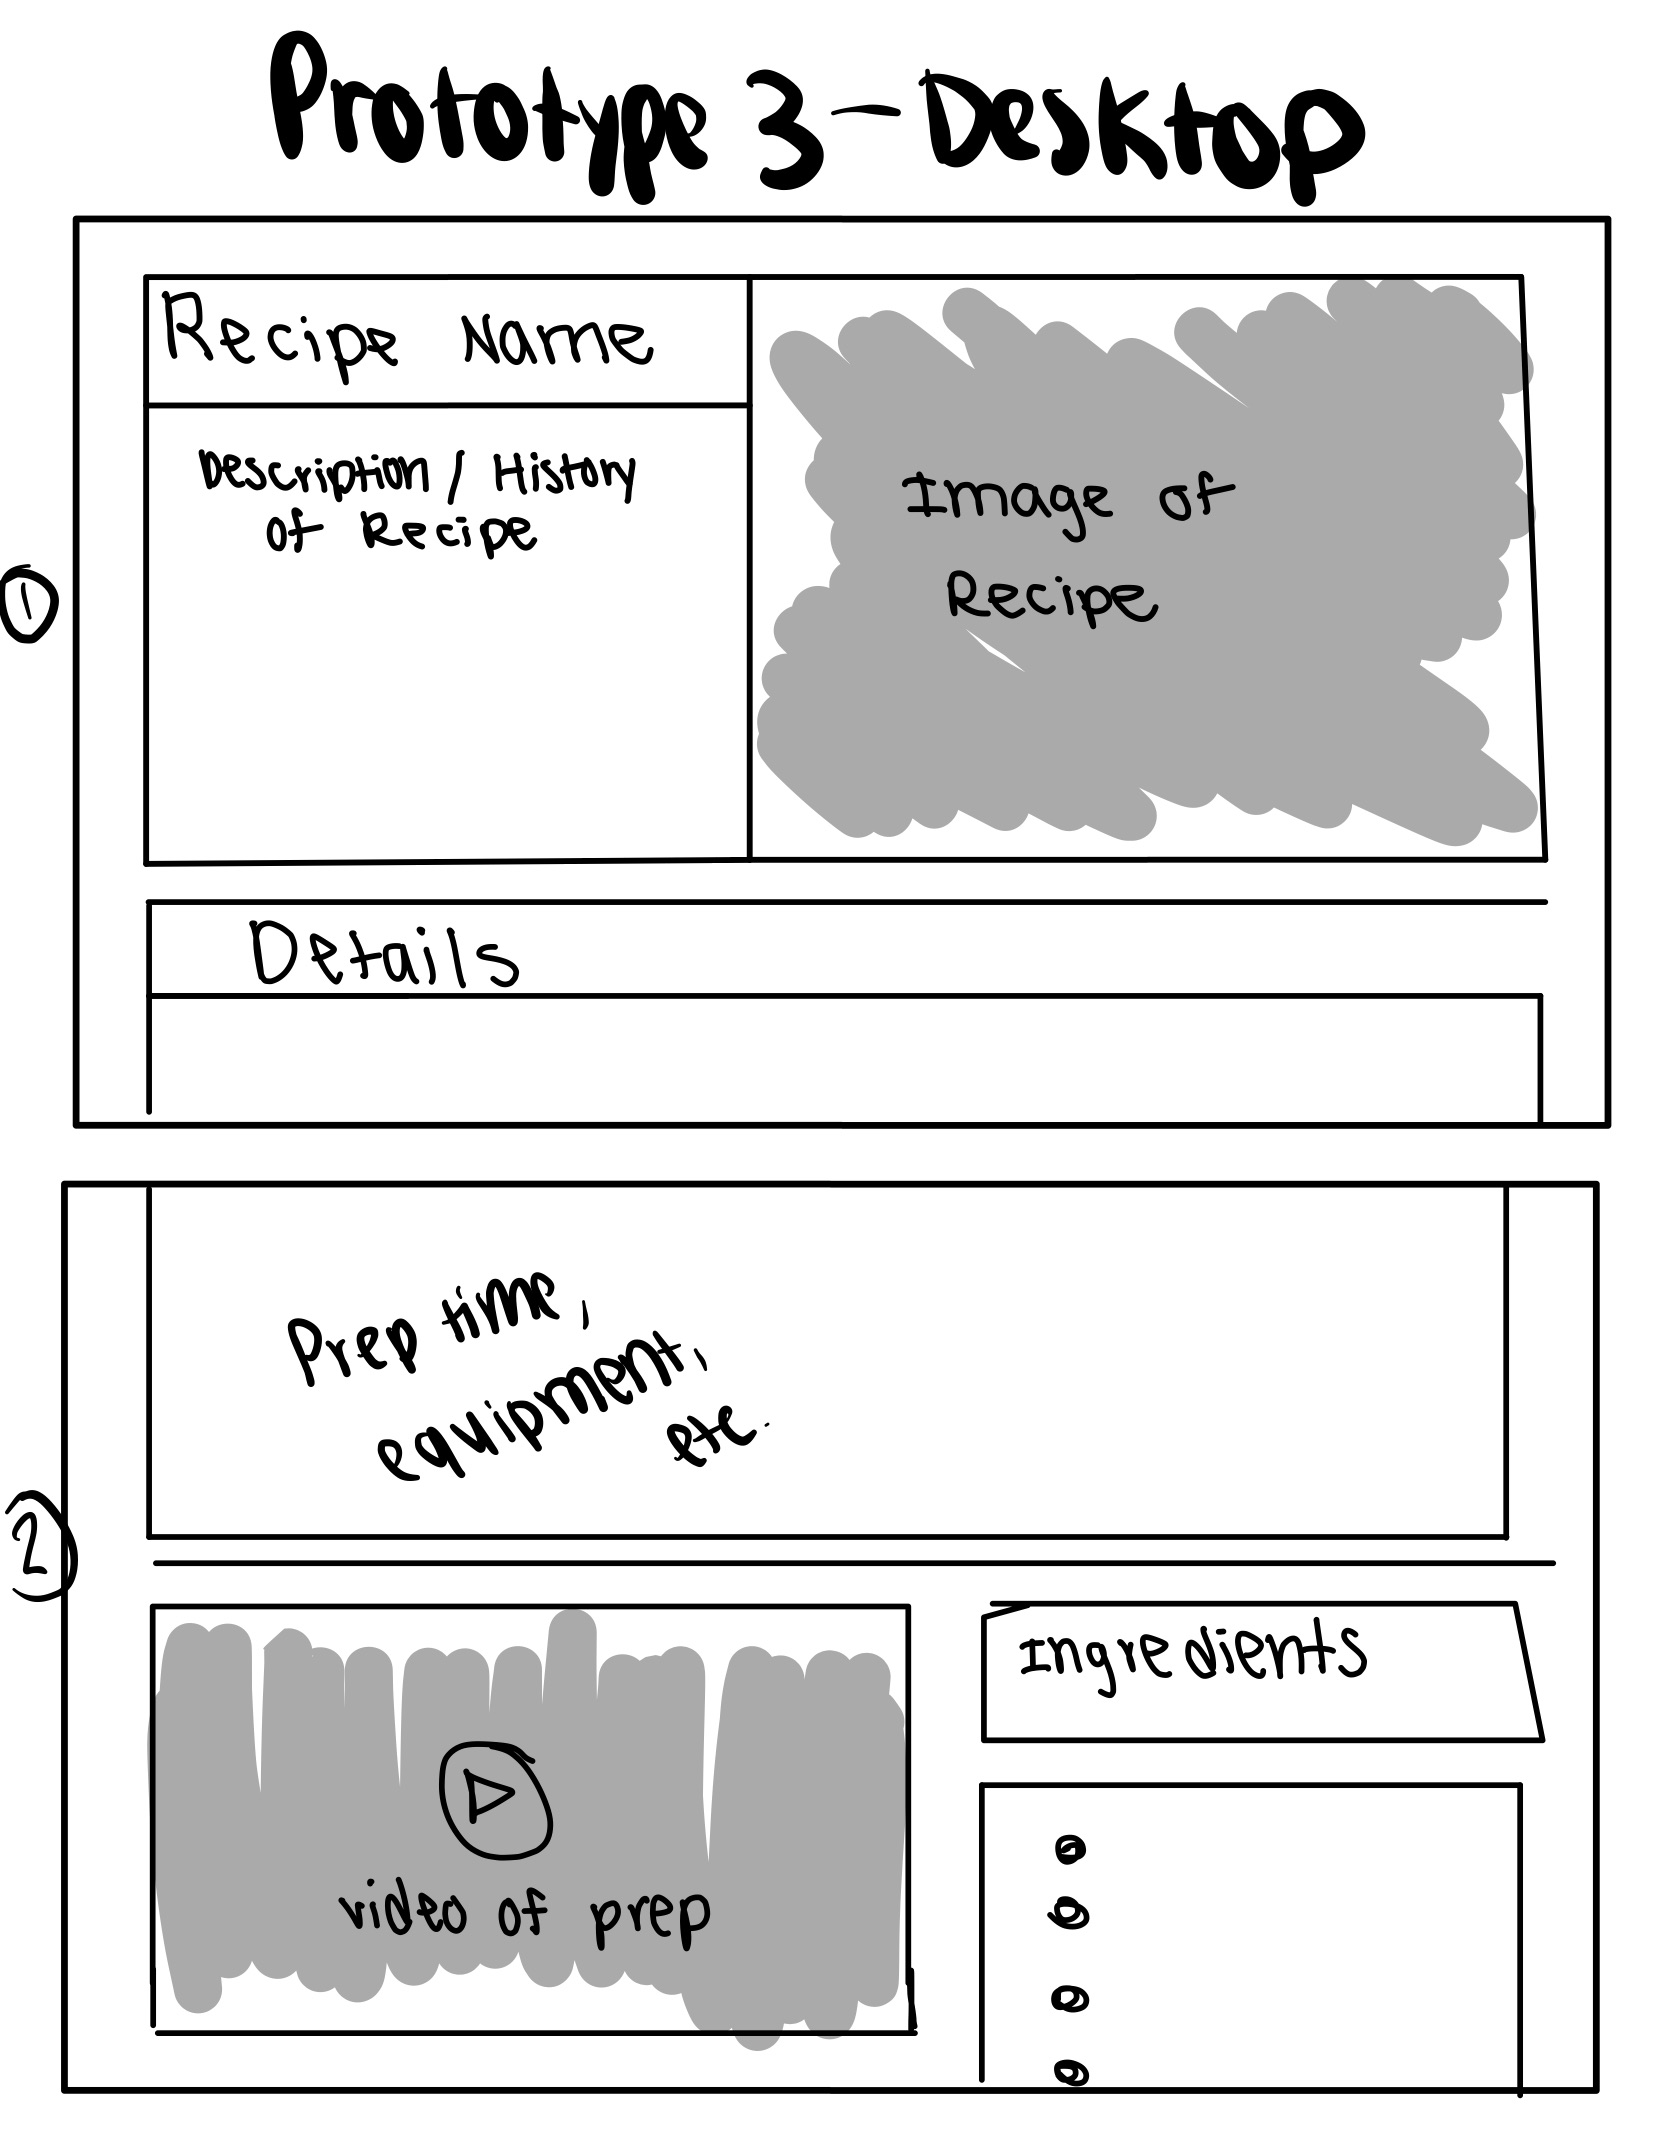 Prototype 3 - Desktop
Recipe Name
Description / History
of Recipe
Image of
Recipe
1
Details
Prep time,
equipment,
etc.
2
video of prep
Ingredients